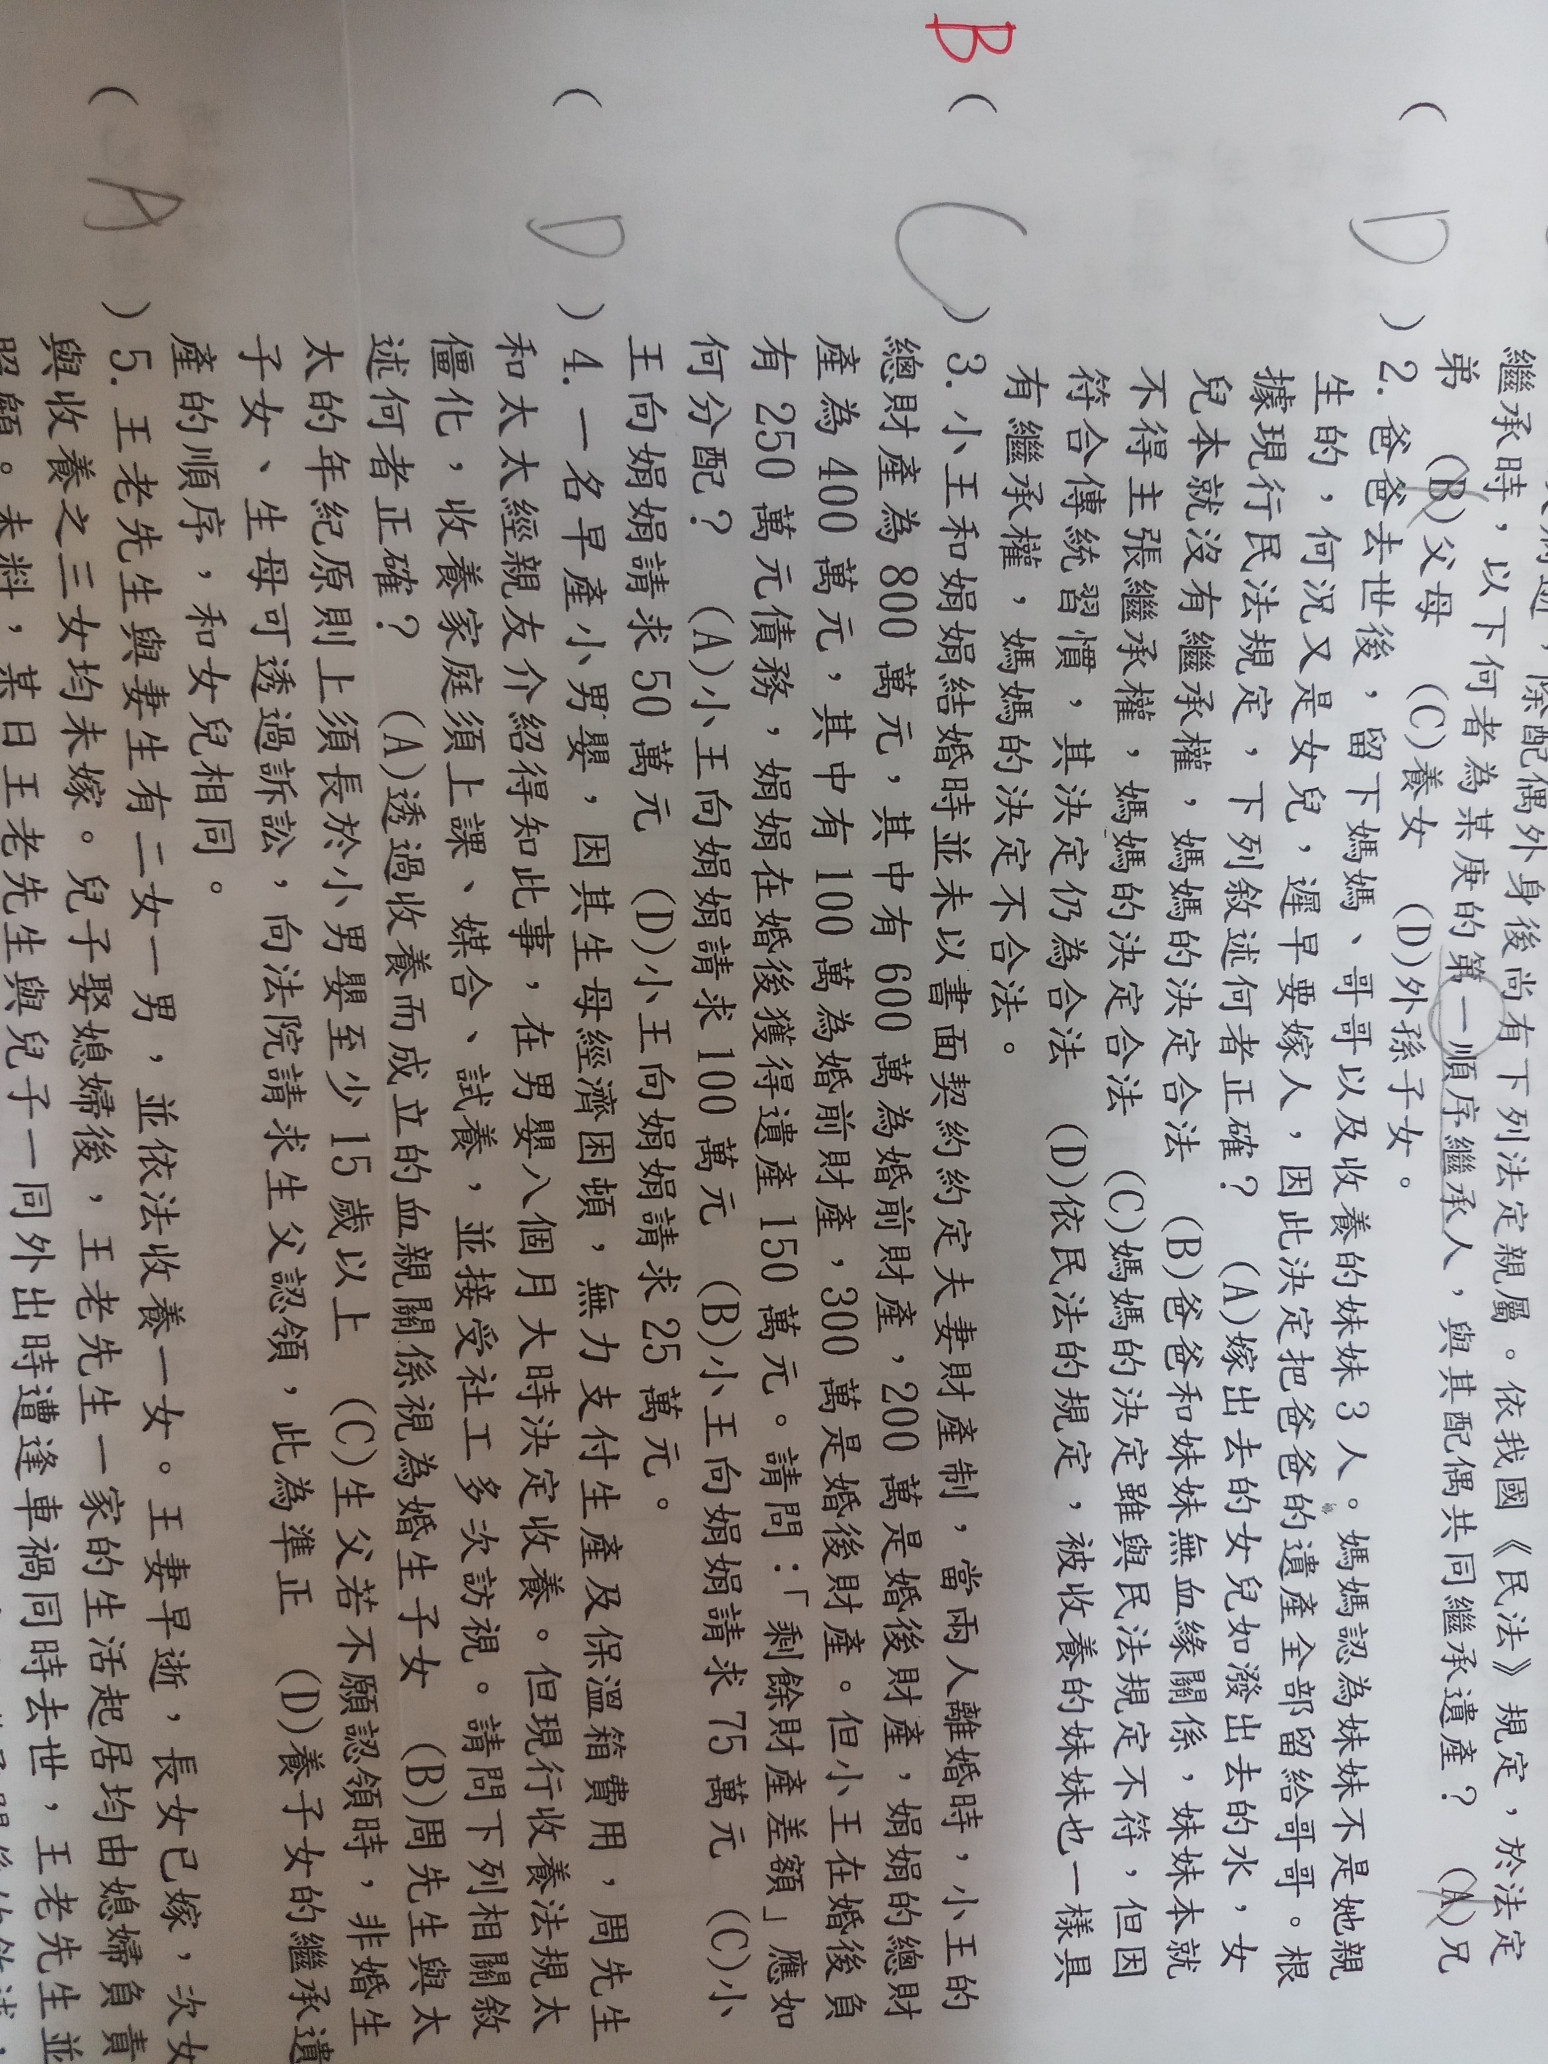 繼承時，以下何者為某庚的第一順序繼承人，與其配偶共同繼承遺產？ (A)兄
弟 (B)父母 (C)養女 (D)外孫子女。
( D ) 2. 爸爸去世後，留下媽媽、哥哥以及收養的妹妹 3 人。媽媽認為妹妹不是她親
生的，何況又是女兒，遲早要嫁人，因此決定把爸爸的遺產全部留給哥哥。根
據現行民法規定，下列敘述何者正確？ (A)嫁出去的女兒如潑出去的水，女
兒本就沒有繼承權，媽媽的決定合法 (B)爸爸和妹妹無血緣關係，妹妹本就
不得主張繼承權，媽媽的決定合法 (C)媽媽的決定雖與民法規定不符，但因
符合傳統習慣，其決定仍為合法 (D)依民法的規定，被收養的妹妹也一樣具
有繼承權，媽媽的決定不合法。
B ( C ) 3. 小王和娟娟結婚時並未以書面契約約定夫妻財產制，當兩人離婚時，小王的
總財產為 800 萬元，其中有 600 萬為婚前財產，200 萬是婚後財產，娟娟的總財
產為 400 萬元，其中有 100 萬為婚前財產，300 萬是婚後財產。但小王在婚後負
有 250 萬元債務，娟娟在婚後獲得遺產 150 萬元。請問：「剩餘財產差額」應如
何分配？ (A)小王向娟娟請求 100 萬元 (B)小王向娟娟請求 75 萬元 (C)小
王向娟娟請求 50 萬元 (D)小王向娟娟請求 25 萬元。
( D ) 4. 一名早產小男嬰，因其生母經濟困頓，無力支付生產及保溫箱費用，周先生
和太太經親友介紹得知此事，在男嬰八個月大時決定收養。但現行收養法規太
僵化，收養家庭須上課、媒合、試養，並接受社工多次訪視。請問下列相關敘
述何者正確？ (A)透過收養而成立的血親關係視為婚生子女 (B)周先生與太
太的年紀原則上須長於小男嬰至少 15 歲以上 (C)生父若不願認領時，非婚生
子女、生母可透過訴訟，向法院請求生父認領，此為準正 (D)養子女的繼承遺
產的順序，和女兒相同。
( A ) 5. 王老先生與妻生有二女一男，並依法收養一女。王妻早逝，長女已嫁，次女
與收養之三女均未嫁。兒子娶媳婦後，王老先生一家的生活起居均由媳婦負責
照顧。未料，某日王老先生與兒子一同外出時遭逢車禍同時去世，王老先生並